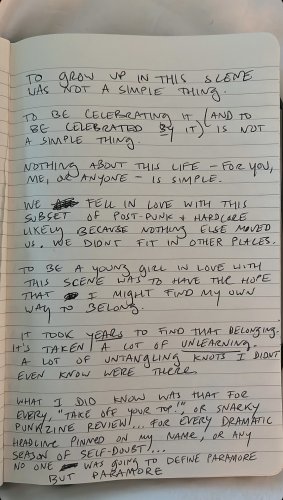 TO GROW UP IN THIS SCENE
WAS NOT A SIMPLE THING.
TO BE CELEBRATING IT (AND TO
BE CELEBRATED BY IT) IS NOT
A SIMPLE THING.
NOTHING ABOUT THIS LIFE - FOR YOU,
ME, OR ANYONE - IS SIMPLE.
WE FELL IN LOVE WITH THIS
SUBSET OF POST-PUNK & HARDCORE
LIKELY BECAUSE NOTHING ELSE MOVED
US. WE DIDNT FIT IN OTHER PLACES.
TO BE A YOUNG GIRL IN LOVE WITH
THIS SCENE WAS TO HAVE THE HOPE
THAT I MIGHT FIND MY OWN
WAY TO BELONG.
IT TOOK YEARS TO FIND THAT BELONGING.
IT'S TAKEN A LOT OF UNLEARNING.
A LOT OF UNTANGLING KNOTS I DIDNT
EVEN KNOW WERE THERE.
WHAT I DID KNOW WAS THAT FOR
EVERY, "TAKE OFF YOUR TOP!", OR SNARKY
PUNKZINE REVIEW... FOR EVERY DRAMATIC
HEADLINE PINNED ON MY NAME, OR ANY
SEASON OF SELF-DOUBT...
NO ONE WAS GOING TO DEFINE PARAMORE
BUT PARAMORE